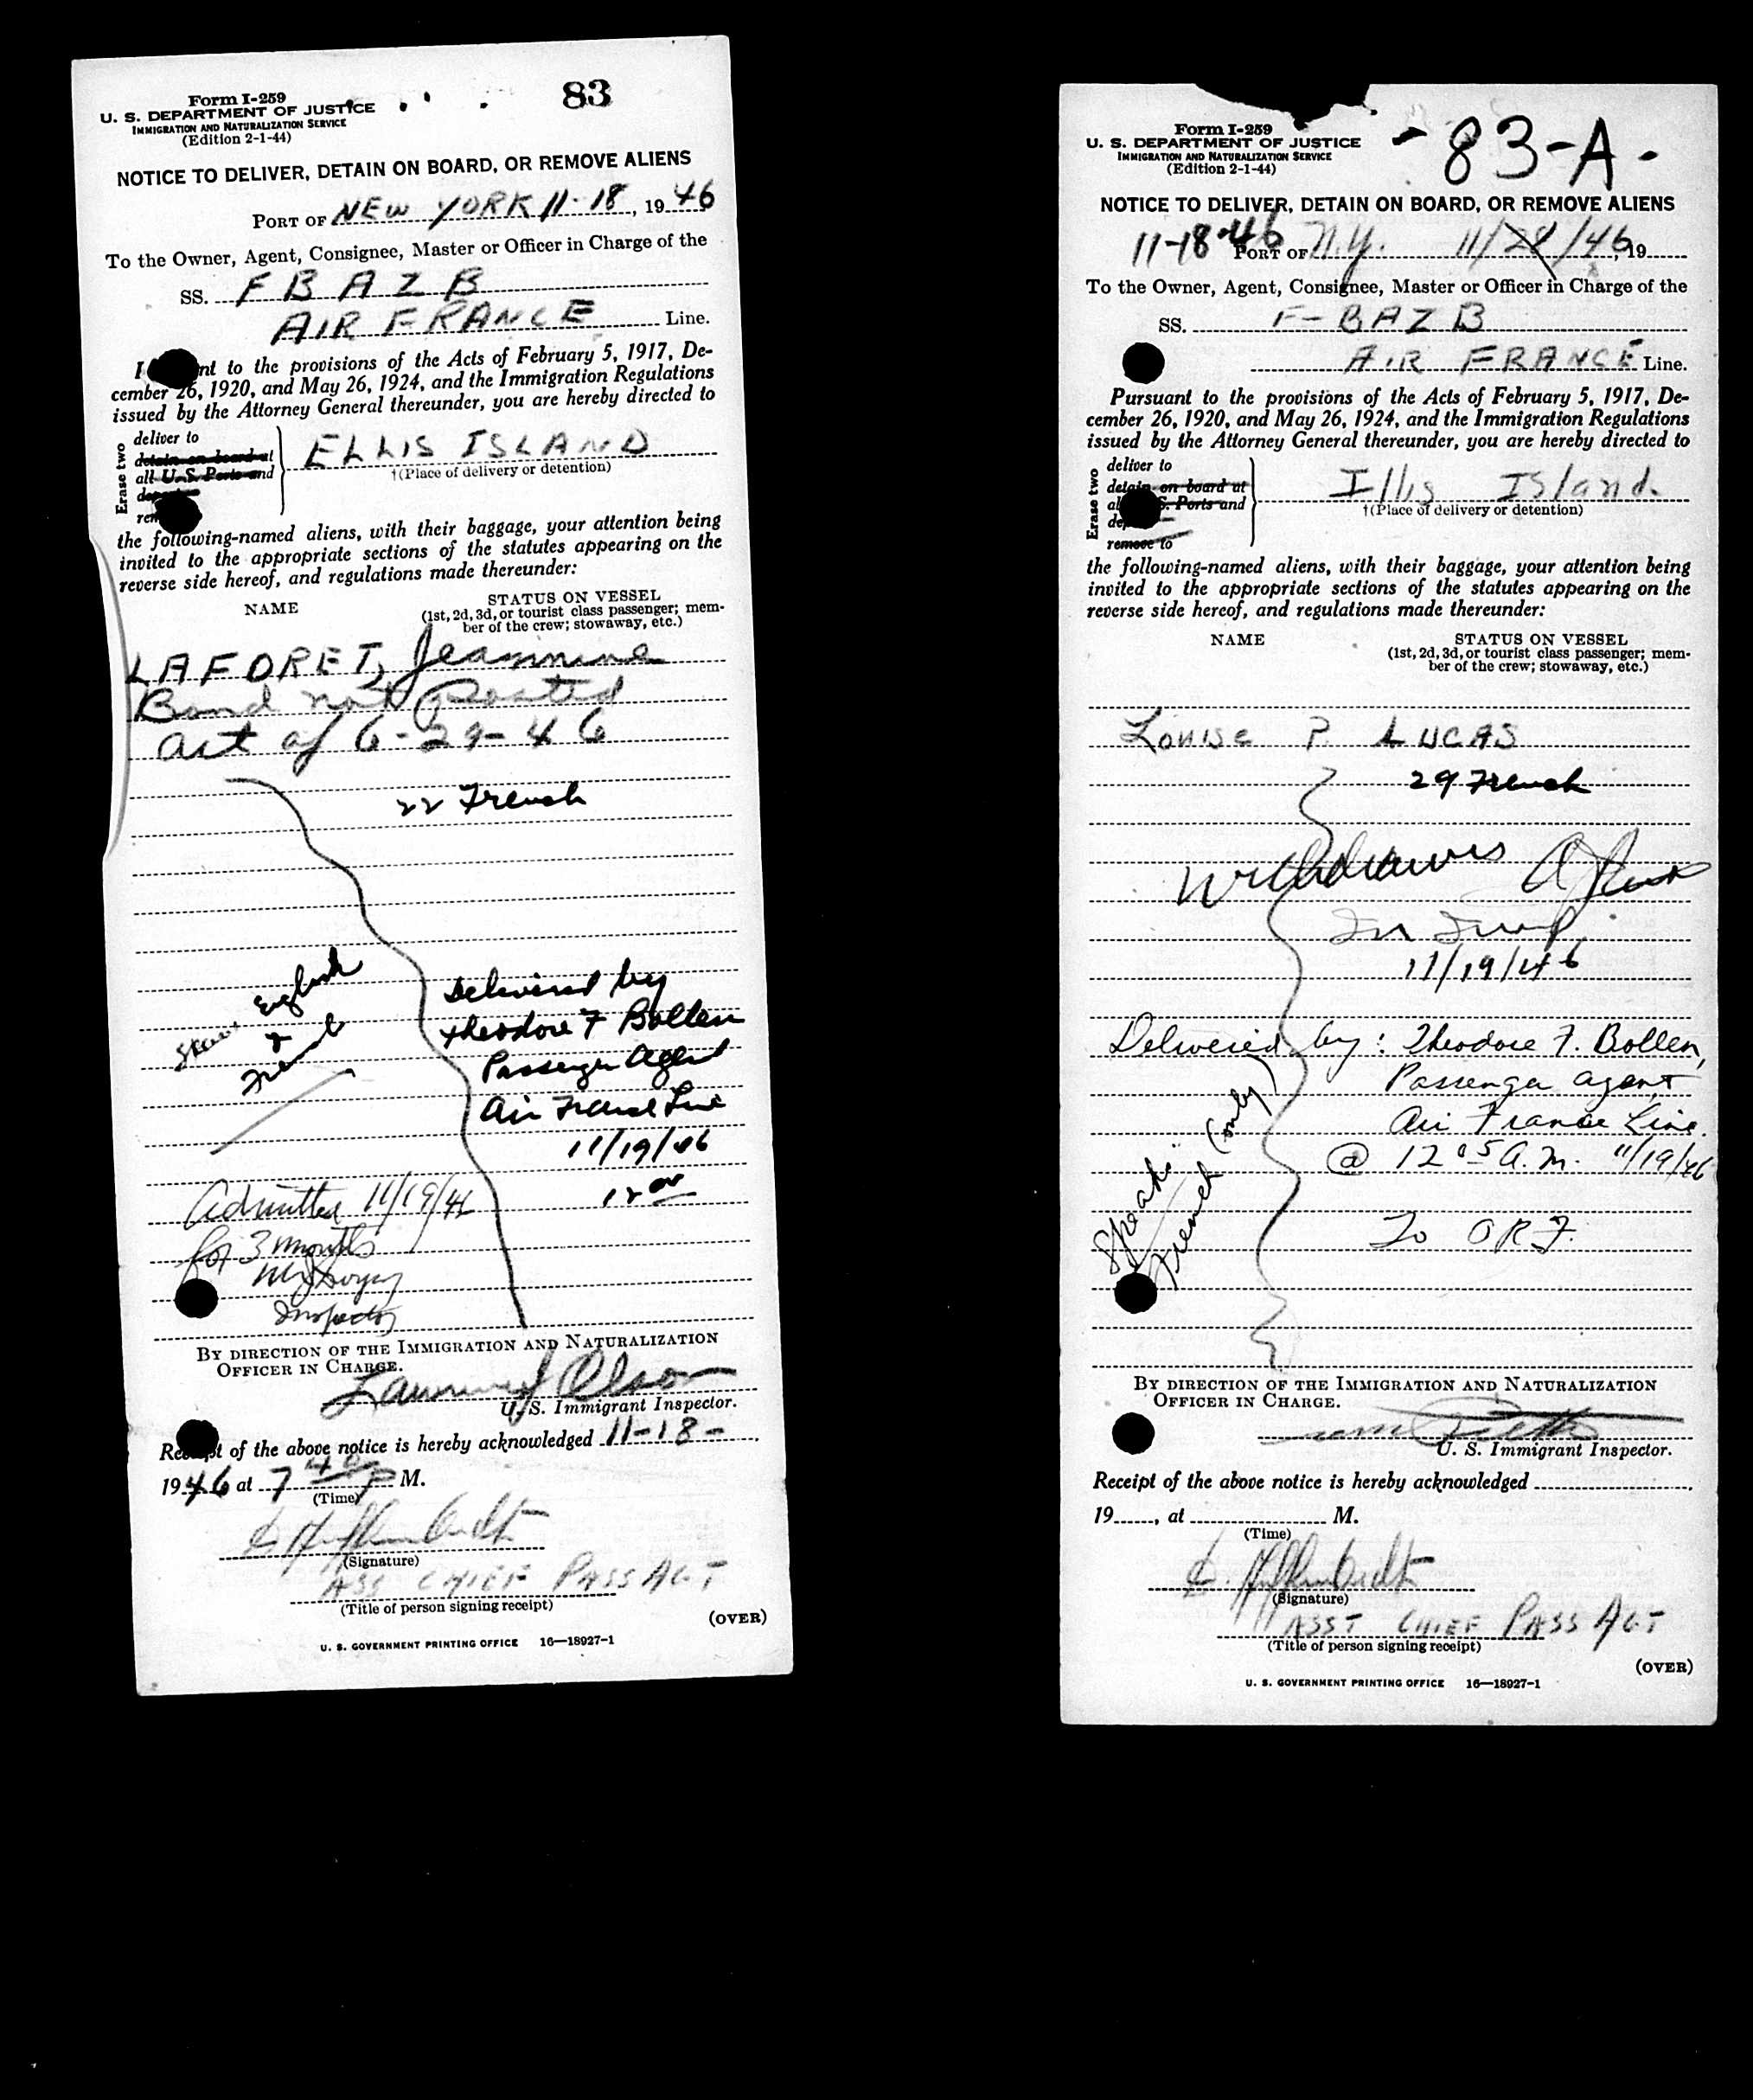 Form I-259
U. S. DEPARTMENT OF JUSTICE
IMMIGRATION AND NATURALIZATION SERVICE
(Edition 2-1-44)
83
NOTICE TO DELIVER, DETAIN ON BOARD, OR REMOVE ALIENS
PORT OF NEW YORK 11-18, 1946
To the Owner, Agent, Consignee, Master or Officer in Charge of the
SS. F B A Z B
AIR FRANCE Line.
to the provisions of the Acts of February 5, 1917, De-
cember 26, 1920, and May 26, 1924, and the Immigration Regulations
issued by the Attorney General thereunder, you are hereby directed to
Erase two
deliver to
detain on board at
all U.S. Ports and
ELLIS ISLAND
†(Place of delivery or detention)
the following-named aliens, with their baggage, your attention being
invited to the appropriate sections of the statutes appearing on the
reverse side hereof, and regulations made thereunder:
NAME STATUS ON VESSEL
(1st, 2d, 3d, or tourist class passenger; mem-
ber of the crew; stowaway, etc.)
LAFORET, Jeannine
Bond not Posted
Act of 6-29-46
22 French
English
&
French
Delivered by
Theodore F Bollen
Passenger Agent
Air France Line
11/19/46
12
Admitted 11/19/46
for 3 months
Inspector
BY DIRECTION OF THE IMMIGRATION AND NATURALIZATION
OFFICER IN CHARGE.
Olson
U. S. Immigrant Inspector.
of the above notice is hereby acknowledged 11-18-
1946 at 7 40 P M.
(Time)
(Signature)
ASS CHIEF PASS AGT
(Title of person signing receipt)
(OVER)
U. S. GOVERNMENT PRINTING OFFICE 16—18927-1
Form I-259
U. S. DEPARTMENT OF JUSTICE
IMMIGRATION AND NATURALIZATION SERVICE
(Edition 2-1-44)
- 83-A -
NOTICE TO DELIVER, DETAIN ON BOARD, OR REMOVE ALIENS
11-18-46 PORT OF N.Y. 11/28/46, 19
To the Owner, Agent, Consignee, Master or Officer in Charge of the
SS. F-BAZB
AIR FRANCE Line.
Pursuant to the provisions of the Acts of February 5, 1917, De-
cember 26, 1920, and May 26, 1924, and the Immigration Regulations
issued by the Attorney General thereunder, you are hereby directed to
Erase two
deliver to
detain on board at
Ports and
remove to
Illis Island.
†(Place of delivery or detention)
the following-named aliens, with their baggage, your attention being
invited to the appropriate sections of the statutes appearing on the
reverse side hereof, and regulations made thereunder:
NAME STATUS ON VESSEL
(1st, 2d, 3d, or tourist class passenger; mem-
ber of the crew; stowaway, etc.)
Louise P. LUCAS
29 French
11/19/46
Delivered by: Theodore F. Bollen,
Passenger agent
Air France Line.
@ 12 05 A.M. 11/19/46
Speaks
French (only)
To O R F.
BY DIRECTION OF THE IMMIGRATION AND NATURALIZATION
OFFICER IN CHARGE.
U. S. Immigrant Inspector.
Receipt of the above notice is hereby acknowledged
19, at M.
(Time)
(Signature)
ASST CHIEF PASS AGT
(Title of person signing receipt)
(OVER)
U. S. GOVERNMENT PRINTING OFFICE 16—18927-1